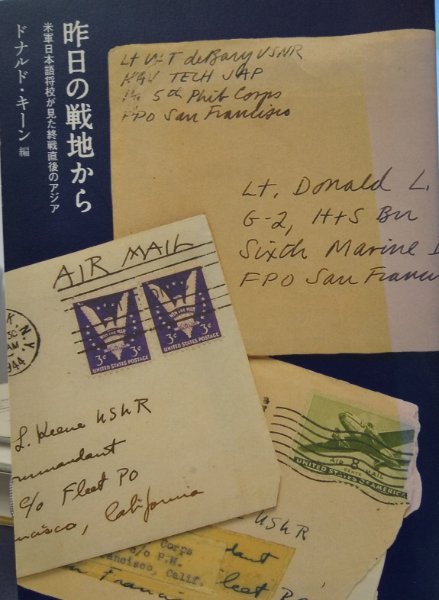 昨日の戦地から
米軍日本語将校が見た終戦直後のアジア
ドナルド・キーン 編
Lt WT deBary USNR
TECH JAP
5th Phib Corps
FPO San Francisco
Lt. Donald L.
G-2, H+S Bn
Sixth Marine
FPO San Franci
AIR MAIL
WIN THE WAR
3¢ 3¢
UNITED STATES POSTAGE
UNITED STATES POSTAGE
N.Y.
1944
L. Keene USNR
mmandant
c/o Fleet PO
ncisco, California
8¢
AIR MAIL
UNITED STATES OF AMERICA
USNR
Corps
c/o P.M.
ancisco, Calif.
dant
Fleet Po
San Franci